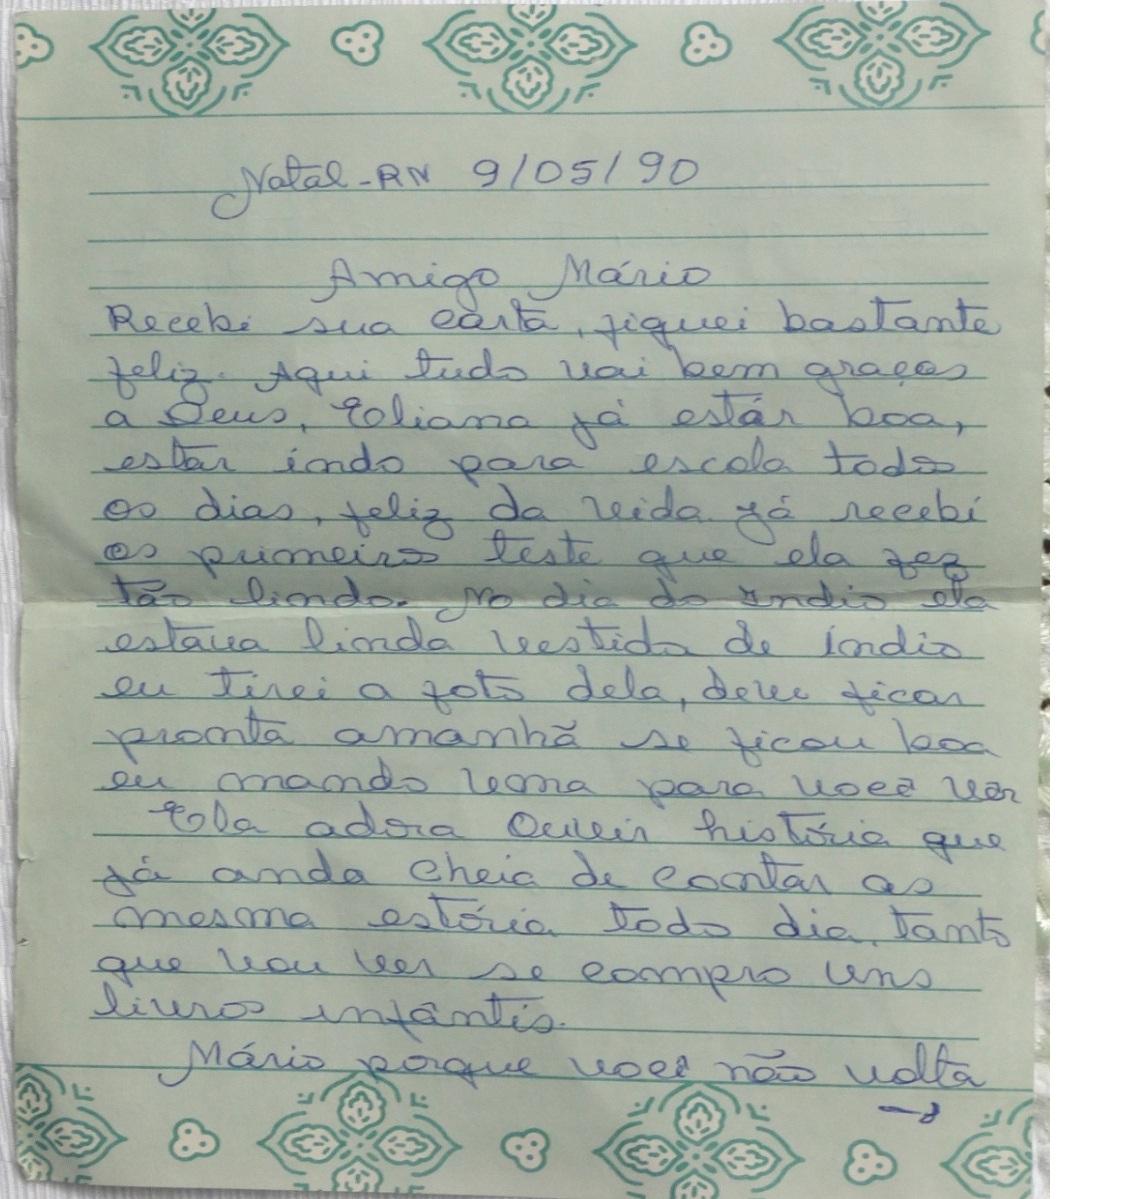 Natal-RN 9/05/90
Amigo Mário
Recebi sua carta, fiquei bastante
feliz. Aqui tudo vai bem graças
a Deus, Eliana já estár boa,
estar indo para escola todo
os dias, feliz da vida já recebi
os primeiros teste que ela fez
tão lindo. No dia do Indio ela
estava linda vestida de índio
eu tirei a foto dela, deve ficar
pronta amanhã se ficou boa
eu mando uma para você ver
Ela adora ouvir história que
já anda cheia de contar as
mesma estória todo dia, tanto
que vou ver se compro uns
livros infântis.
Mário porque você não volta